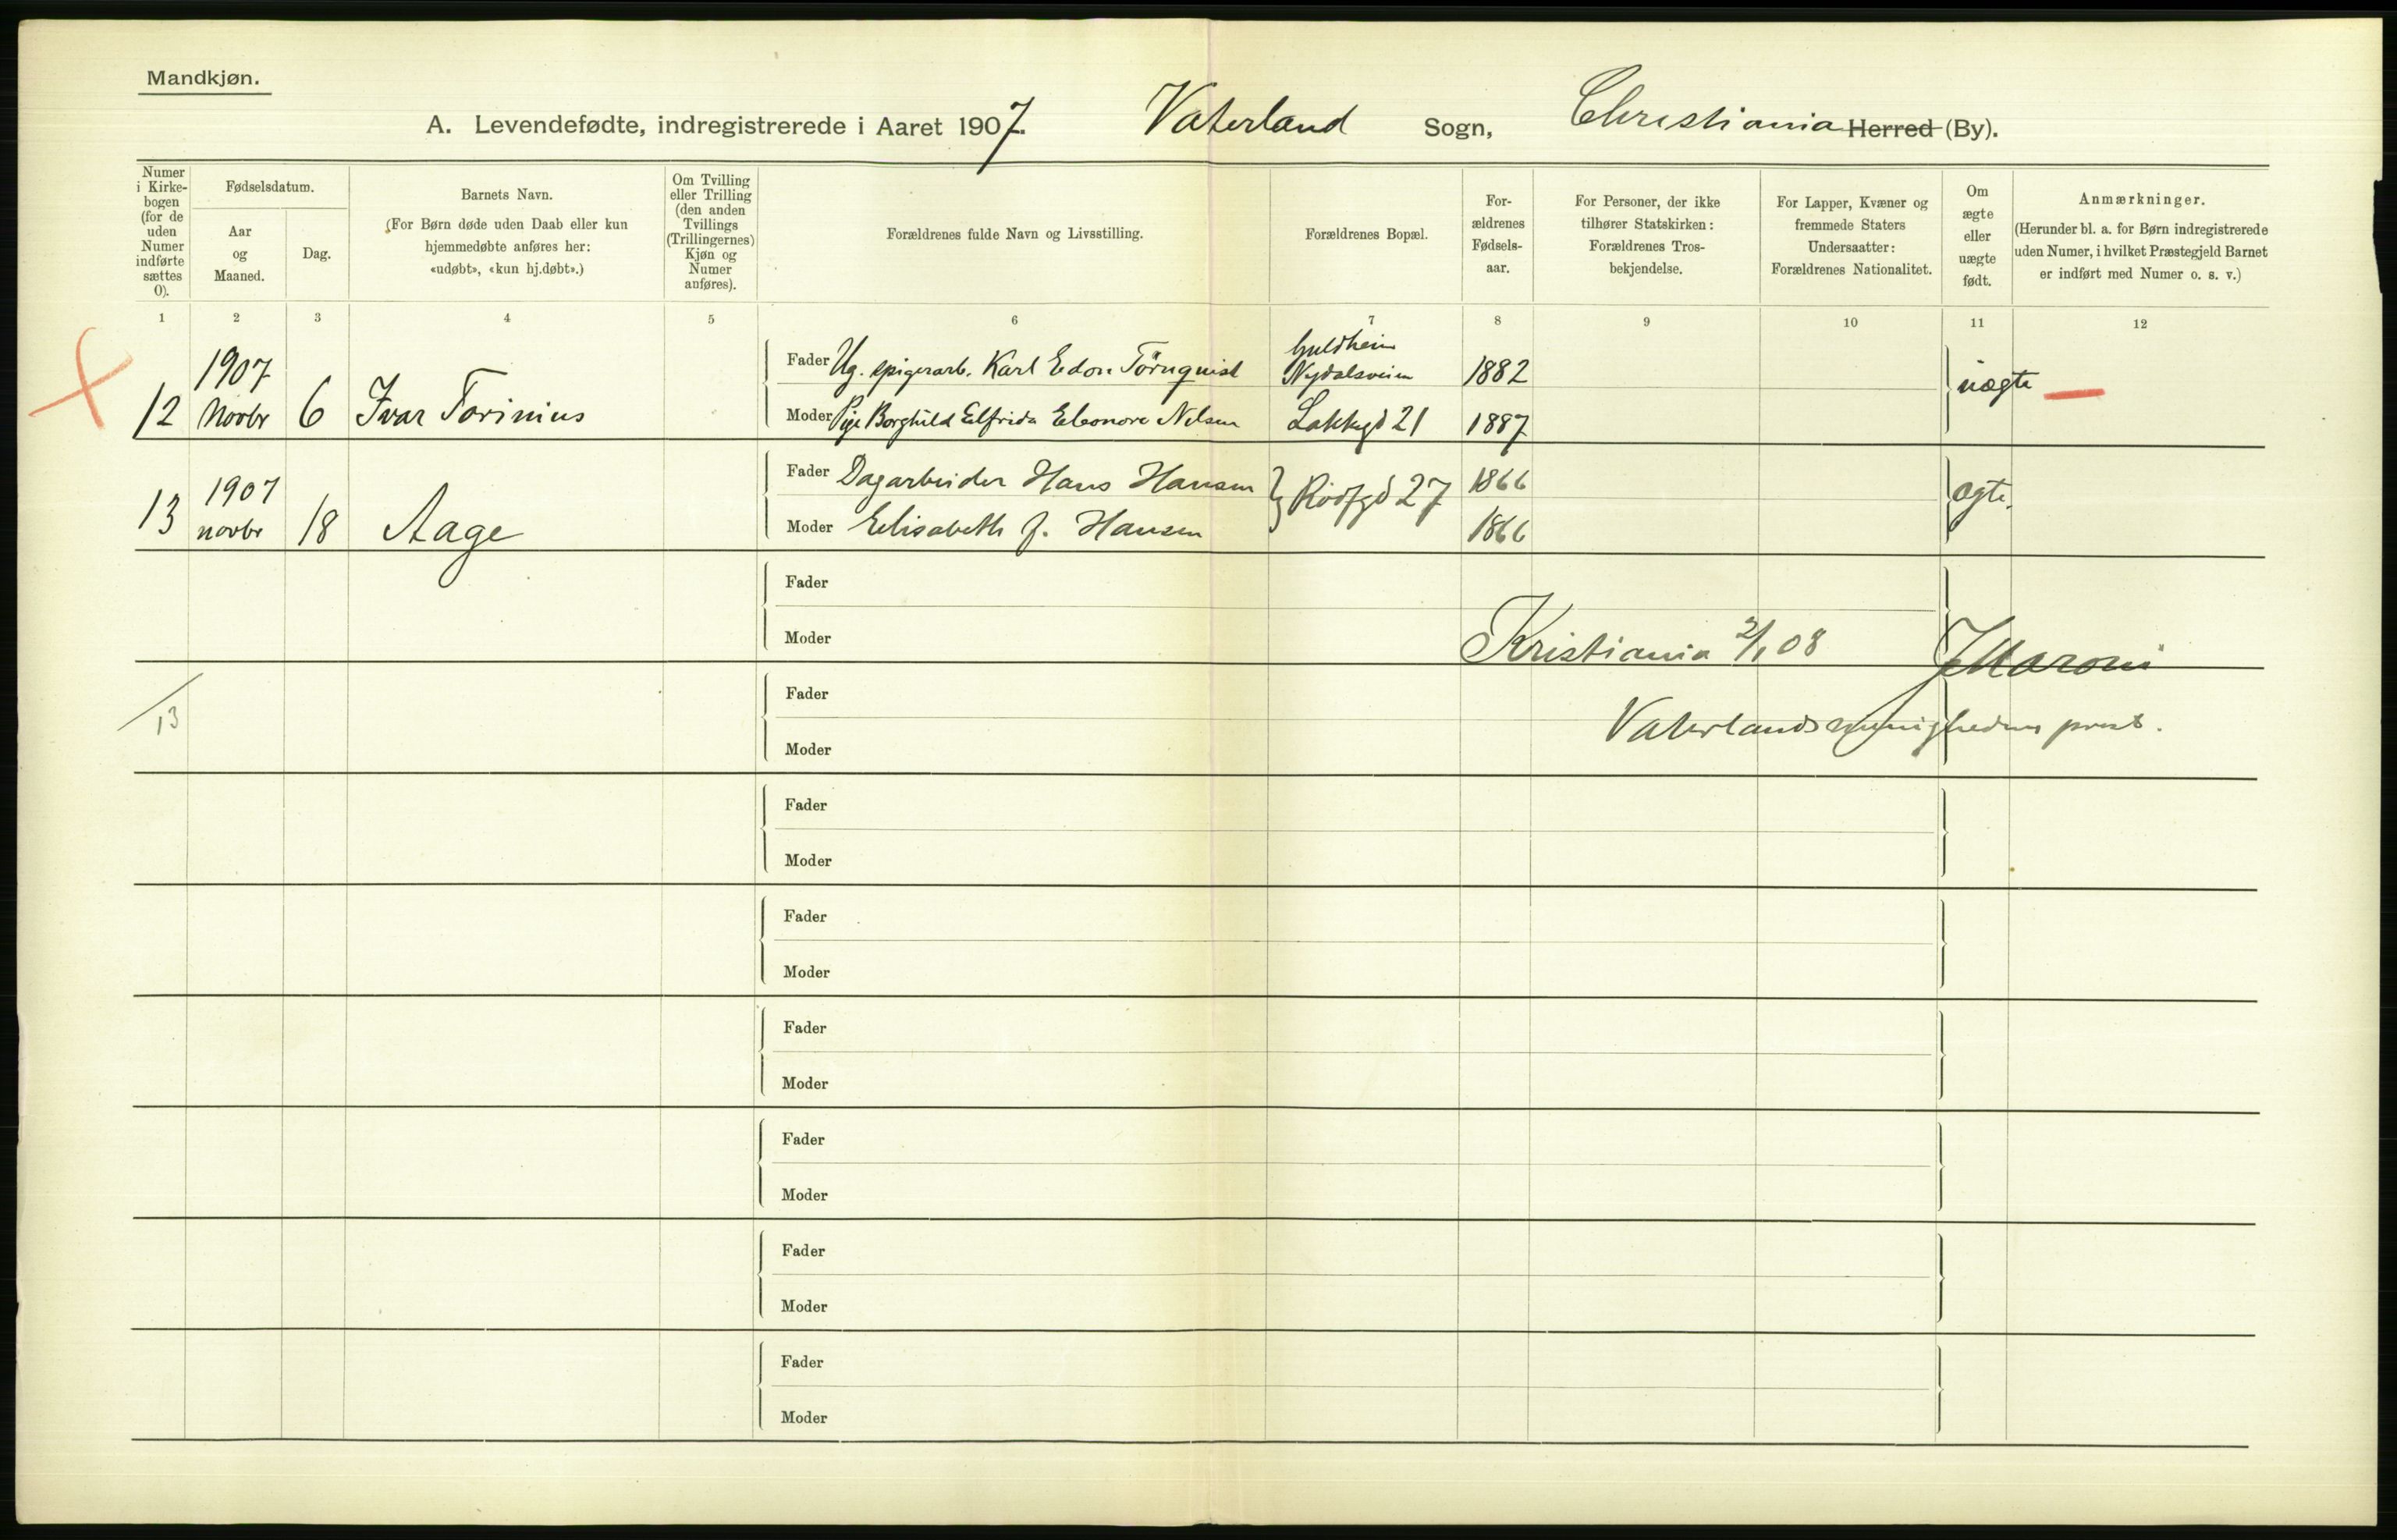 Mandkjøn.
A. Levendefødte, indregistrerede i Aaret 1907. Vaterland Sogn, Christiania Herred (By).
Numer i Kirkebogen (for de uden Numer indførte sættes 0).
Fødselsdatum.
Aar og Maaned.
Dag.
Barnets Navn.
(For Børn døde uden Daab eller kun
hjemmedøbte anføres her:
«udøbt», «kun hj.døbt».)
Om Tvilling
eller Trilling
(den anden
Tvillings
(Trillingernes)
Kjøn og
Numer
anføres).
Forældrenes fulde Navn og Livsstilling.
Forældrenes Bopæl.
For-
ældrenes
Fødsels-
aar.
For Personer, der ikke
tilhører Statskirken:
Forældrenes Tros-
bekjendelse.
For Lapper, Kvæner og
fremmede Staters
Undersaatter:
Forældrenes Nationalitet.
Om
ægte
eller
uægte
født.
Anmærkninger.
(Herunder bl. a. for Børn indregistrerede
uden Numer, i hvilket Præstegjeld Barnet
er indført med Numer o. s. v.)
1 2 3 4 5 6 7 8 9 10 11 12
12 1907 Novbr 6 Ivar Torinius
Fader Ug. spigerarb. Karl Edon Törnquist Guldheim Nydalsveien 1882
Moder Pige Borghild Elfrida Eleonore Nilsen Lakkegd 21 1887
uægte
13 1907 novbr 18 Aage
Fader Dagarbeider Hans Hansen Rödfgd 27 1866
Moder Elisabeth f. Hansen 1866
ægte.
Fader
Moder
Kristiania 2/1 08 Maroni
13
Fader
Vaterlandsmenighedens prest.
Moder
Fader
Moder
Fader
Moder
Fader
Moder
Fader
Moder
Fader
Moder
Fader
Moder